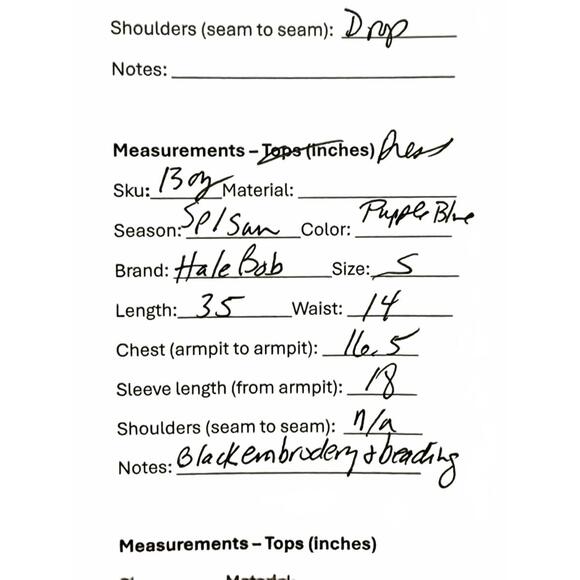 Shoulders (seam to seam): Drop
Notes:
Measurements – Tops (inches) Dress
Sku: Material:
Season: Sp/Sum Color: Purple Blue
Brand: Hale Bob Size: S
Length: 35 Waist: 14
Chest (armpit to armpit): 16.5
Sleeve length (from armpit): 18
Shoulders (seam to seam): n/a
Notes: Black embrodery & beading
Measurements – Tops (inches)